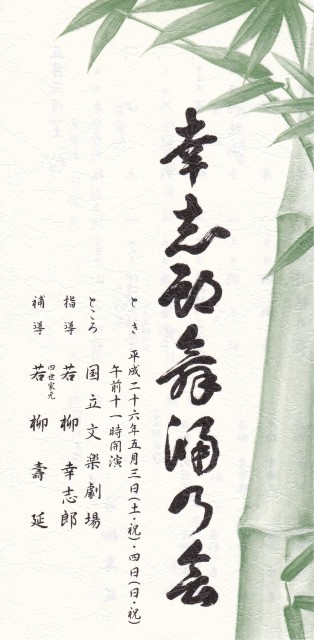 幸志郎舞踊乃会
とき 平成二十六年五月三日(土・祝)・四日(日・祝)
午前十一時開演
ところ 国立文楽劇場
指導 若柳幸志郎
補導 四世家元 若柳壽延